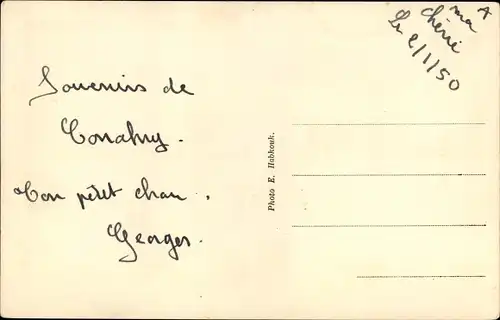 A
ma
chérie
Le 2/1/50
Souvenirs de
Conakry.
Ton petit chou.
Georges.
Photo E. Habkouk.